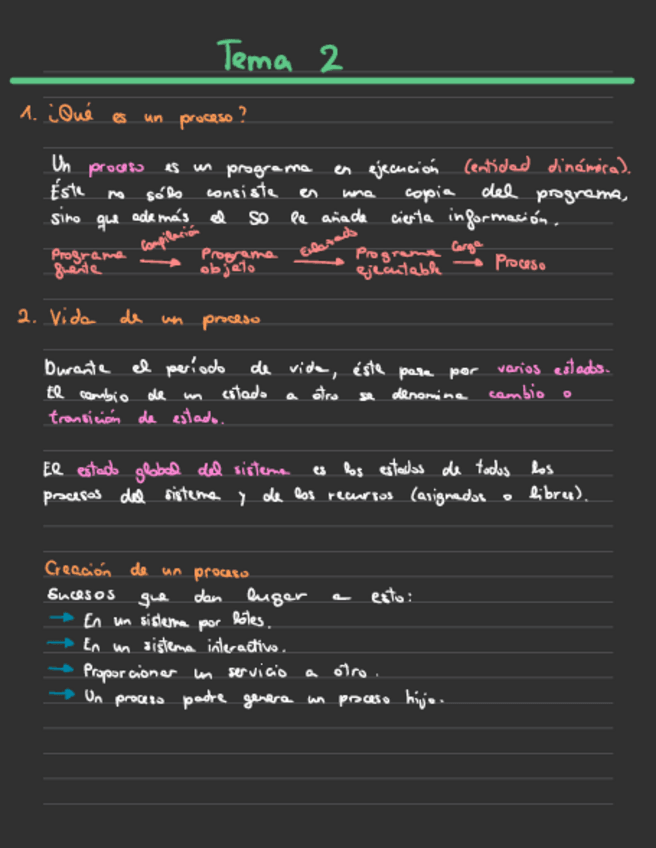 Tema 2
1. ¿Qué es un proceso?
Un proceso es un programa en ejecución (entidad dinámica).
Éste no sólo consiste en una copia del programa,
sino que además el SO le añade cierta información.
Programa fuente → Compilación → Programa objeto → Enlazado → Programa ejecutable → Carga → Proceso
2. Vida de un proceso
Durante el período de vida, éste pasa por varios estados.
El cambio de un estado a otro se denomina cambio o
transición de estado.
El estado global del sistema es los estados de todos los
procesos del sistema y de los recursos (asignados o libres).
Creación de un proceso
Sucesos que dan lugar a esto:
→ En un sistema por lotes.
→ En un sistema interactivo.
→ Proporcionar un servicio a otro.
→ Un proceso padre genera un proceso hijo.